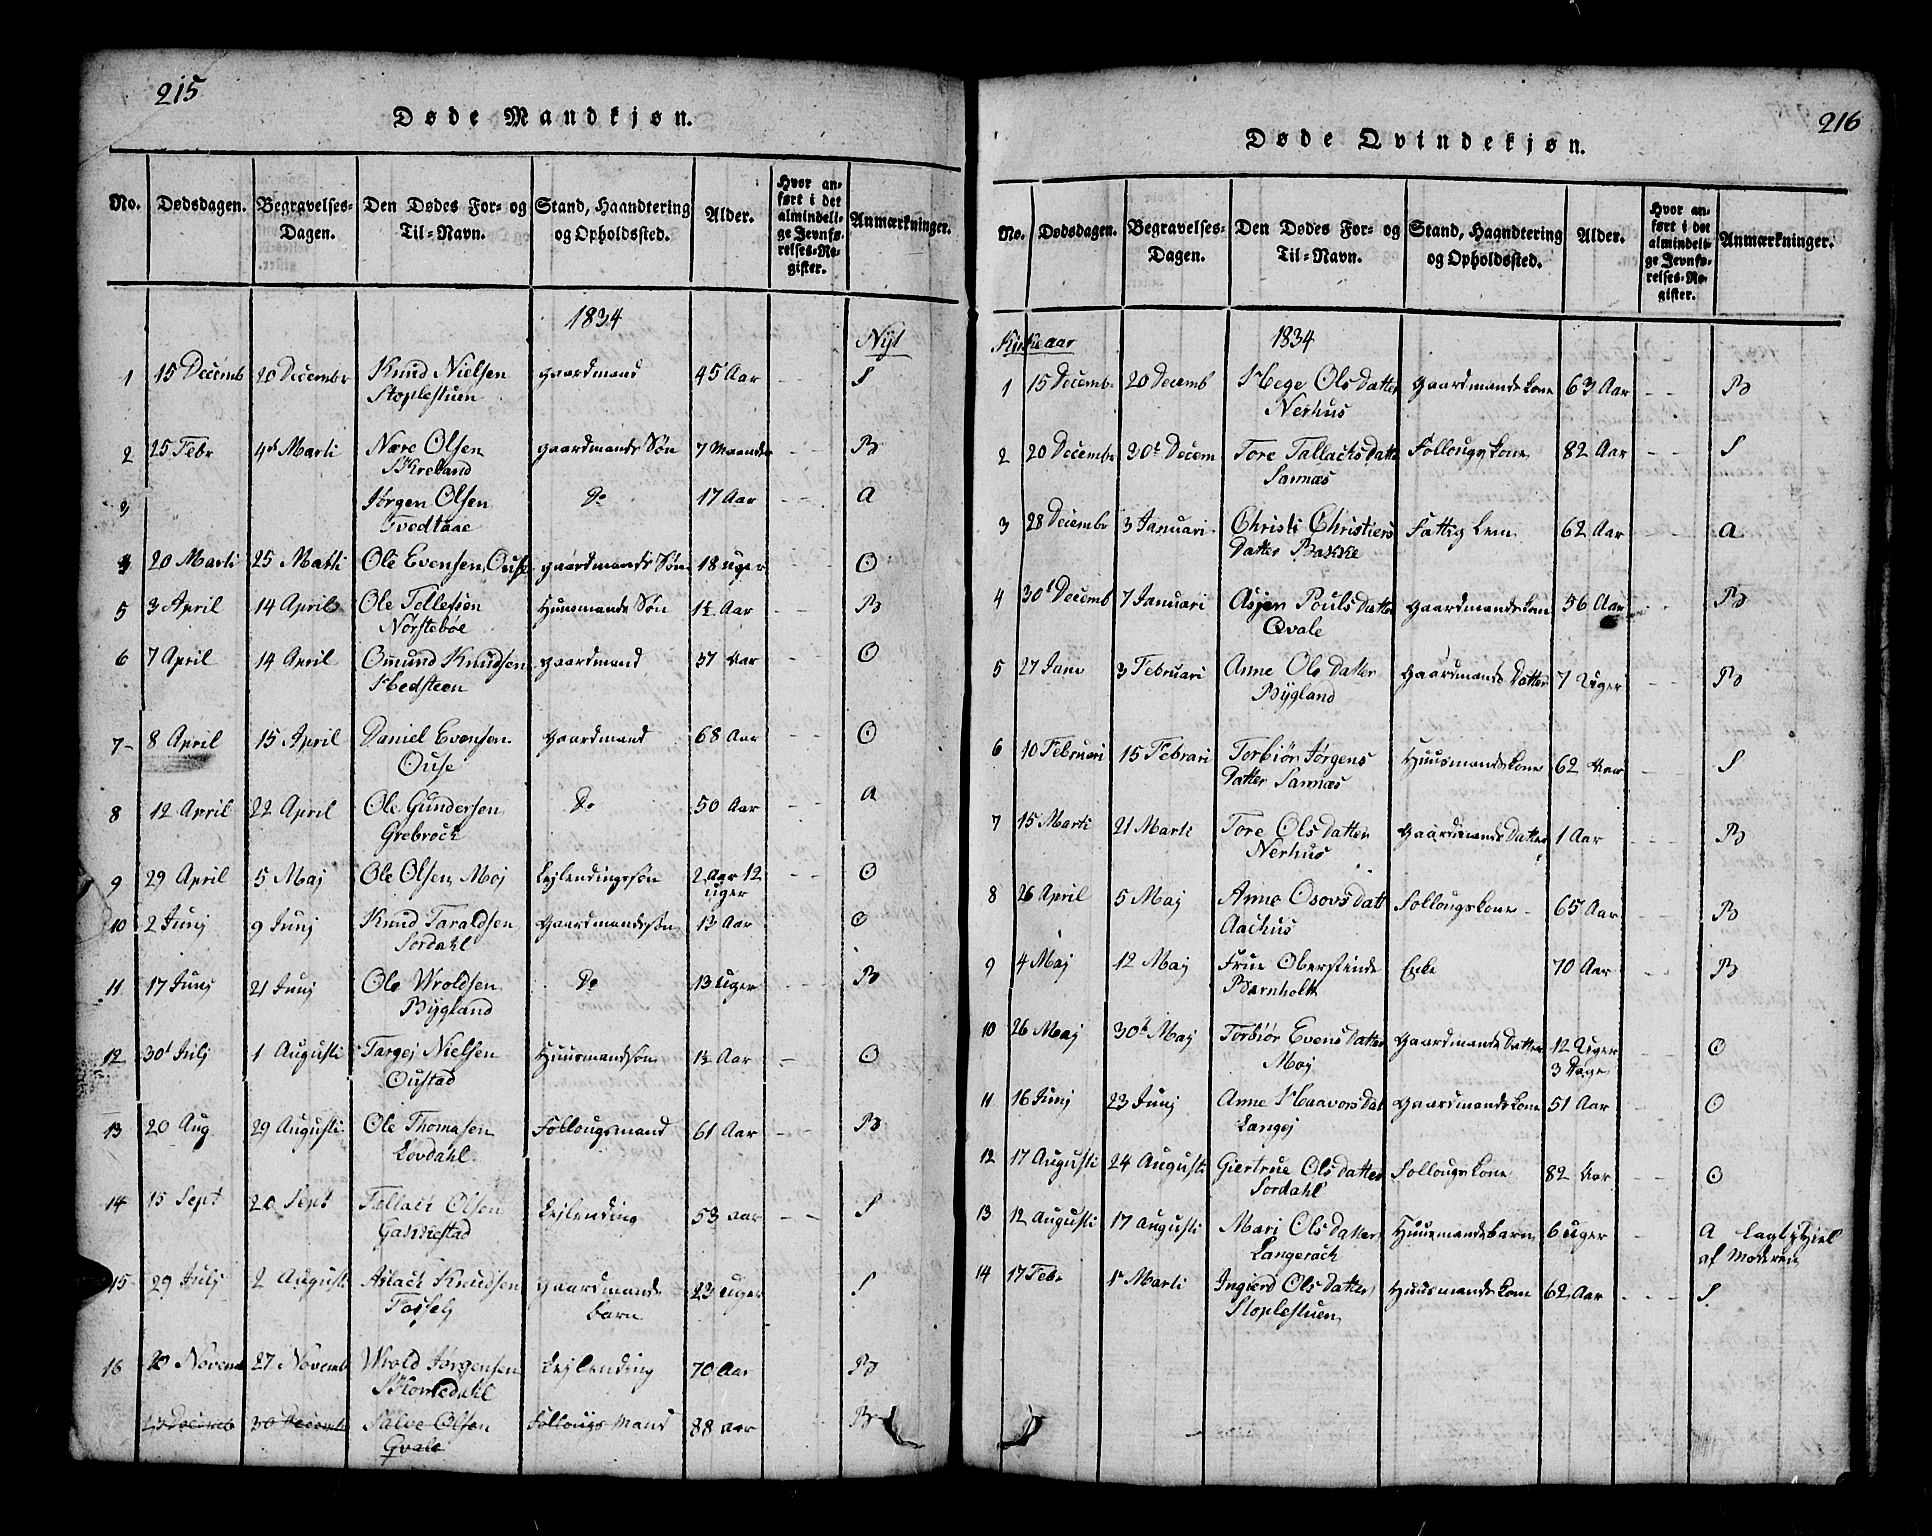 215
Døde Mandkjøn.
No. Dødsdagen. Begravelses-Dagen. Den Dødes For- og Til-Navn. Stand, Haandtering og Opholdssted. Alder. Hvor anført i det almindelige Jevnførelses-Register. Anmærkninger.
1834
1 15 Decemb 20 Decembr Knud Nielsen gaardmand 45 Aar - - S
Stoplestuen
2 25 Febr 4de Marti Olsen gaardmands Søn 7 Maander - - B
3 Jørgen Olsen Do 17 Aar - - A
Tvedtaae
4 20 Marti 25 Marti Ole Evensen Ouse gaardmands Søn 18 uger - - O
5 3 April 14 April Ole Tellefsen Huusmands Søn 1½ Aar - - B
Nørstebøe
6 7 April 14 April Omund Knudsen gaardmand 37 Aar - - O
Hedsteen
7 - 8 April 15 April Daniel Evensen gaardmand 68 Aar - - O
Ouse
8 12 April 22 April Ole Gundersen Do 50 Aar - - A
Grebrock
9 29 April 5 Maj Ole Olsen Moj Lejlendingssøn 2 Aar 12 - - O
uger
10 2 Junj 9 Junj Knud Taraldsen Gaardmandssøn 1½ Aar - - O
Sordahl
11 17 Junj 21 Junj Ole Wroldsen Do 13 uger - - B
Bygland
12 30t Julj 1 Augusti Targej Nielsen Huusmandsøn 1½ Aar - O
Oustad
13 20 Aug 29 Augusti Ole Thomasen Follougsmand 61 Aar - - B
Lovdahl
14 15 Sept 20 Sept Tallach Olsen Lejlending 53 Aar - - S
15 29 Julj 2 Augusti Aslach Knudsen gaardmands 23 uger S
Fosselj barn
16 20 Novemb 27 Novemb Wrold Jørgensen Lejlending 70 Aar B
23 Decemb 30 Decemb Salve Olsen Follougs Mand 88 aar B
Qvale
216
Døde Qvindekjøn.
No. Dødsdagen. Begravelses-Dagen. Den Dødes For- og Til-Navn. Stand, Haandtering og Opholdssted. Alder. Hvor anført i det almindelige Jevnførelses-Register. Anmærkninger.
Kirkeaar 1834
1 15 Decemb 20 Decemb Hege Olsdatter Gaardmandskone 63 Aar - - B
Nerhus
2 20 Decembr 30t Decem Tore Tallachsdatte Follougskone 82 Aar - - S
Sannæs
3 28 Decembr 3 Januari Christi Christiens Fattig Lem 62 Aar - - A
Datter Bakke
4 30t Decemb 7 Januari Asjer Poulsdatter Gaardmandskone 56 Aar - - B
Qvale
5 27 Janr 3 Februari Anne Olsdatter Gaardmands Datter 7 Uger - - B
Bygland
6 10 Februari 15 Febrari Torbiør Jørgens Huusmandskone 62 Aar - S
Datter Sannæs
7 15 Marti 21 Marti Tore Olsdatter Gaardmands Datter 1 Aar - - B
Nerhus
8 26 April 5 Maj Anne Osovsdatt Follougskone - 65 Aar - - B
Aachus
9 4 Maj 12 Maj Frue Oberstinde Enke 70 Aar - - B
Barnholt
10 26 Maj 30te Maj Torbiør Evensdatter Gaardmands Datter 12 Uger - - O
Moj 3 Dage
11 16 Junj 23 Junj Anne Haavorsdat Gaardmandskone 51 Aar - O
Langej
12 17 Augusti 24 Augusti Giertrue Olsdatter Follougskone 82 Aar - - O
Sordahl
13 12 Augusti 17 Augusti Mari Olsdatter Huusmandsbarn 6 uger - A
Langerack af Moderen
14 17 Febr 1te Marti Ingierd Olsdatter Huusmandskone 62 Aar - - - S
Stoplestuen